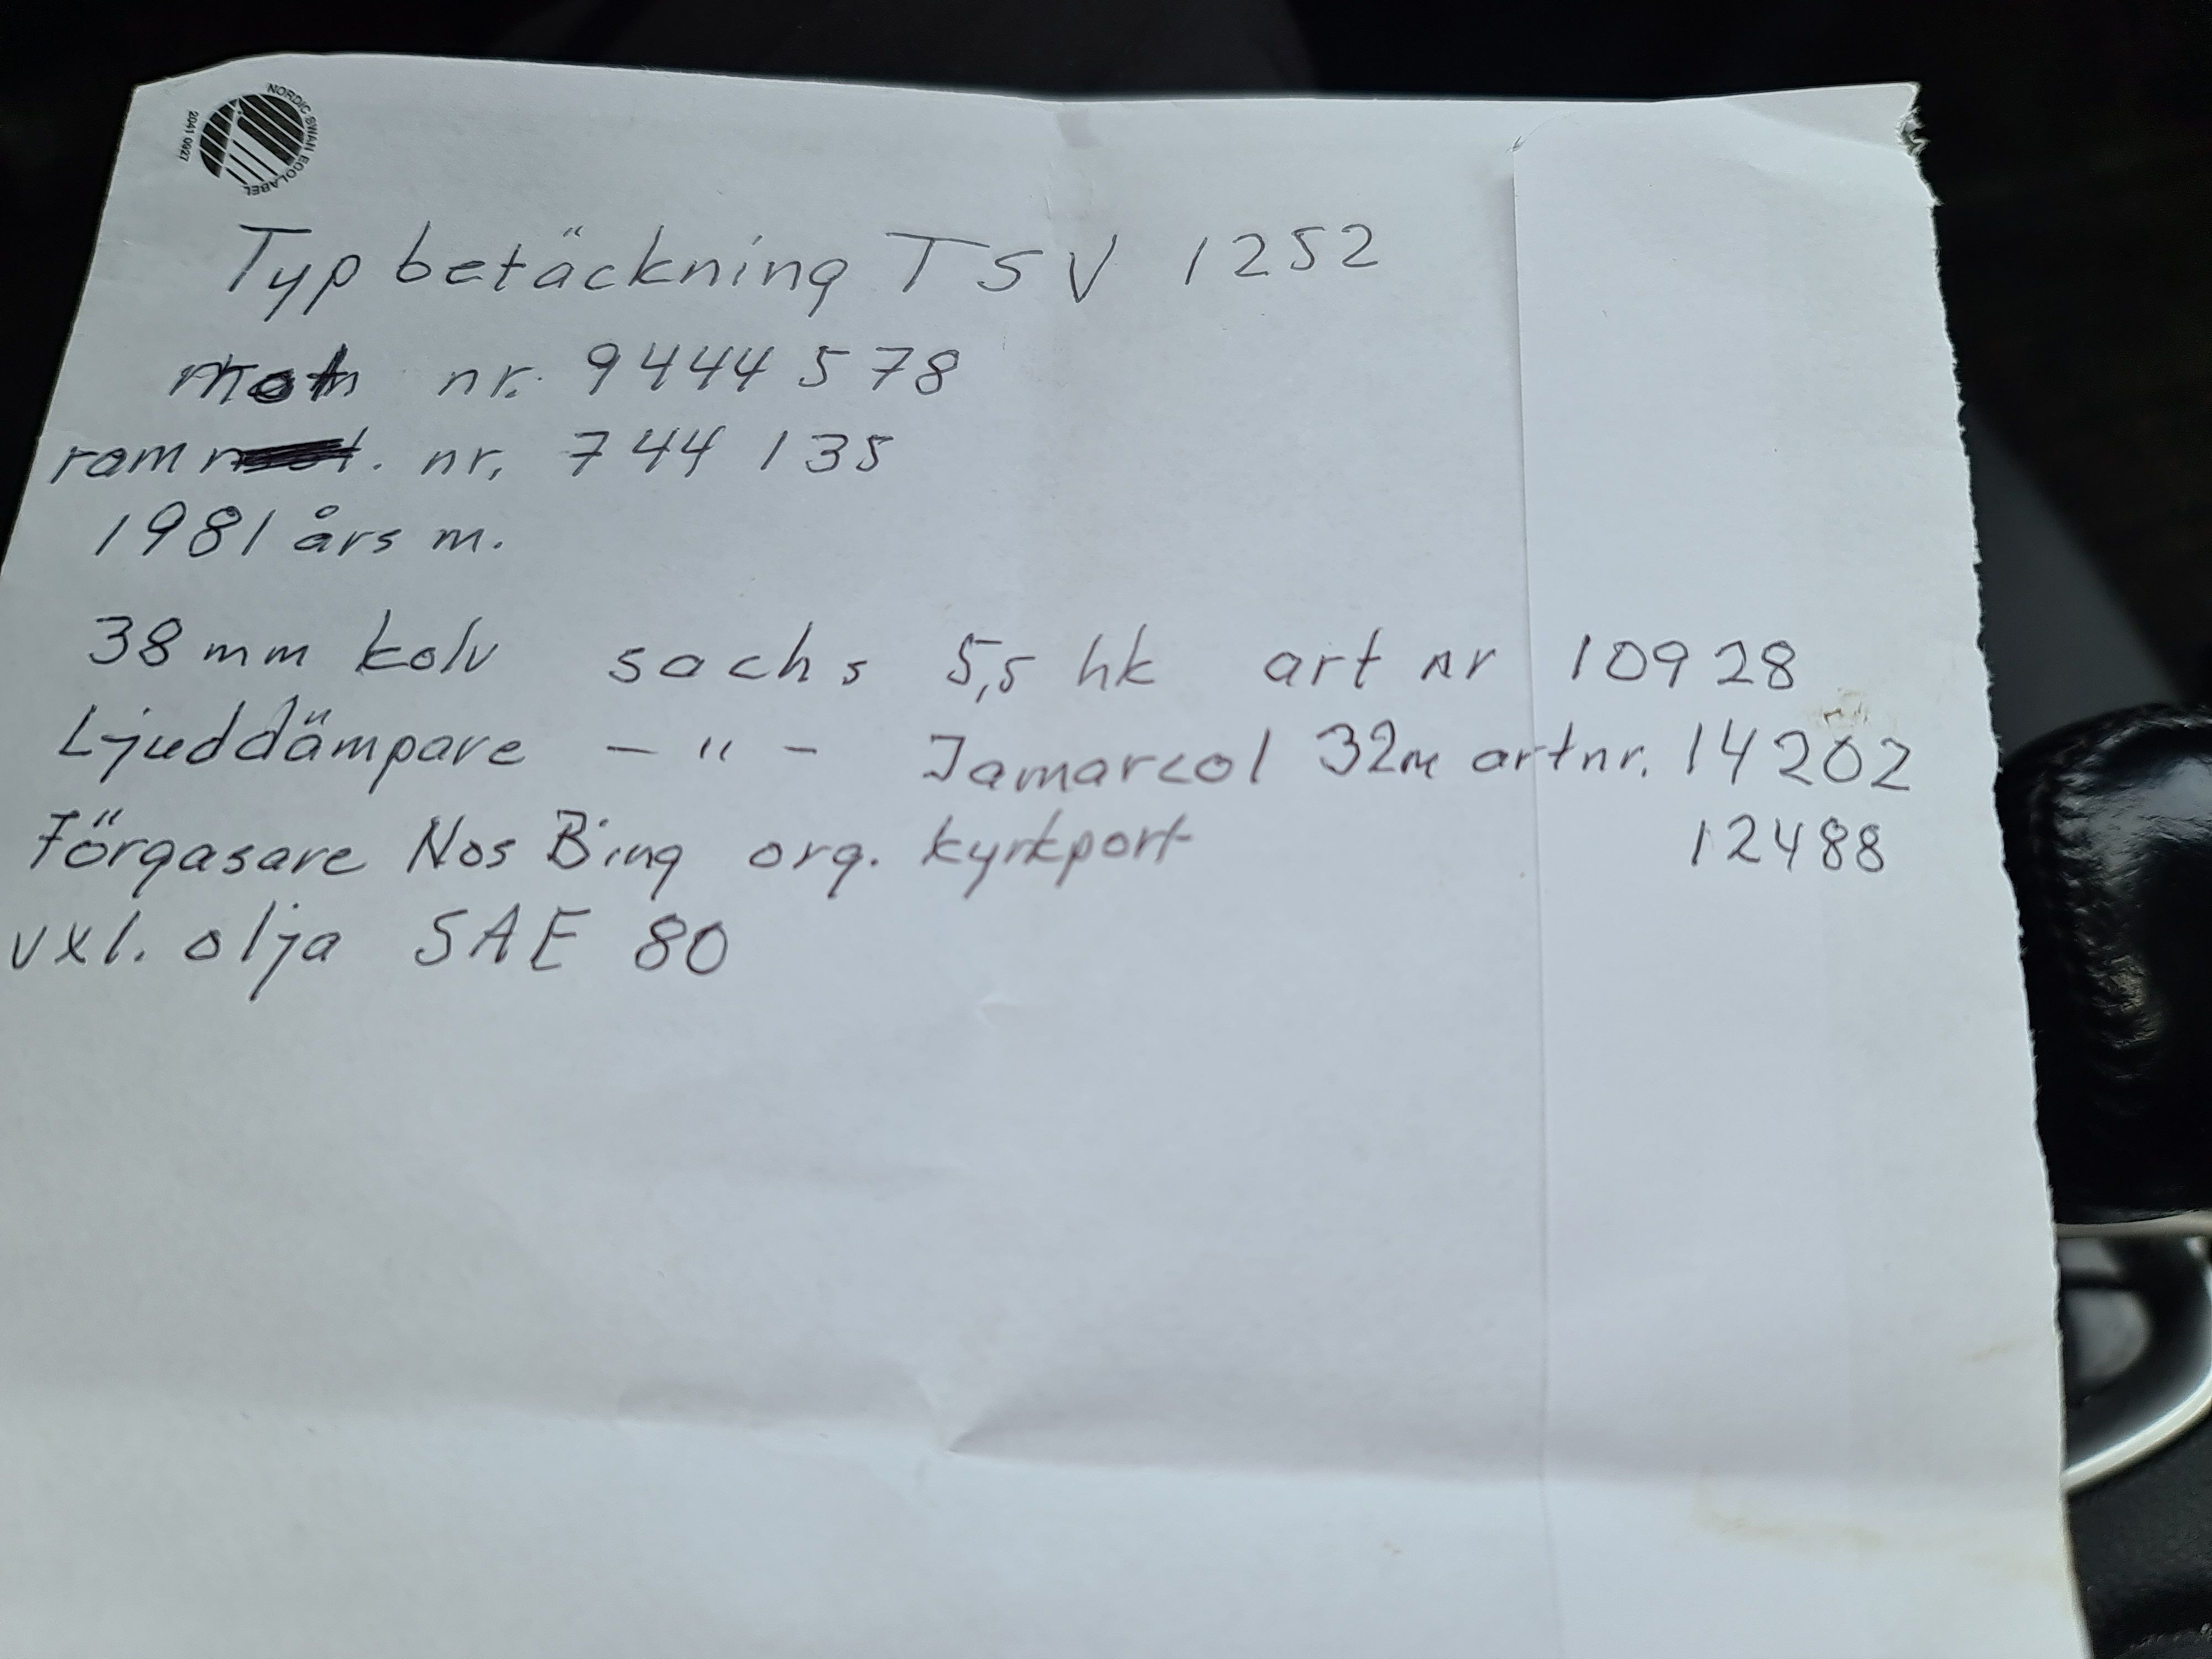 NORDIC SWAN ECOLABEL
2041 0927
Typ betäckning TSV 1252
nr. 9444578
ram nr. 744135
1981 års m.
38 mm kolv sachs 5,5 hk art nr 10928
Ljuddämpare - " - Jamarcol 32m art nr. 14202
Förgasare Nos Bing org. kyrkport 12488
vxl. olja SAE 80